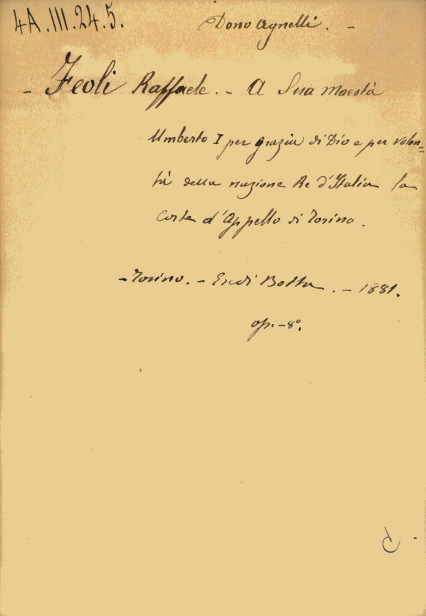 4A.III.24.5.
Dono Agnelli. -
- Feoli Raffaele. - A Sua Maestà
Umberto I per grazia di Dio e per volon-
tà della nazione Re d'Italia la
Corte d'Appello di Torino.
- Torino. - Eredi Botta. - 1881.
op. - 8°.